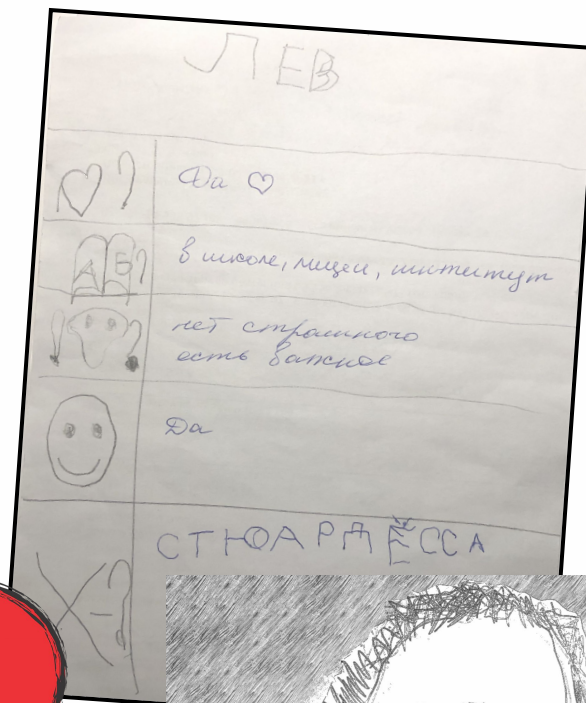 ЛЕВ
?
Да
А Б ?
в школе, лицеи, институт
! ?
нет страшного
есть важное
Да
СТЮАРДЕССА
Х - ?